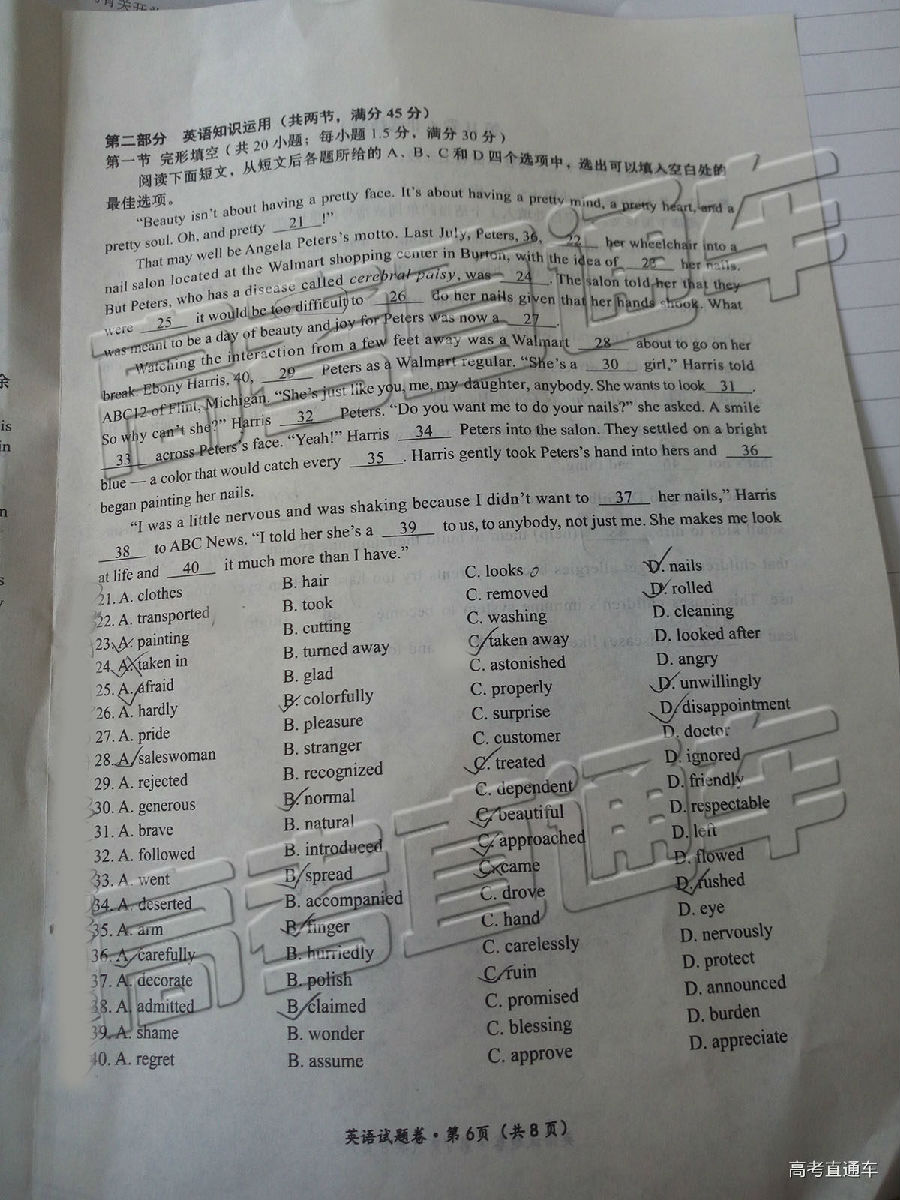 第二部分 英语知识运用（共两节，满分 45 分）
第一节 完形填空（共 20 小题；每小题 1.5 分，满分 30 分）
阅读下面短文，从短文后各题所给的 A、B、C 和 D 四个选项中，选出可以填入空白处的
最佳选项。
"Beauty isn't about having a pretty face. It's about having a pretty mind, a pretty heart, and a
pretty soul. Oh, and pretty 21 !"
That may well be Angela Peters's motto. Last July, Peters, 36, 22 her wheelchair into a
nail salon located at the Walmart shopping center in Burton, with the idea of 23 her nails.
But Peters, who has a disease called cerebral palsy, was 24 . The salon told her that they
were 25 it would be too difficult to 26 do her nails given that her hands shook. What
was meant to be a day of beauty and joy for Peters was now a 27 .
Watching the interaction from a few feet away was a Walmart 28 about to go on her
break. Ebony Harris, 40, 29 Peters as a Walmart regular. "She's a 30 girl," Harris told
ABC12 of Flint, Michigan. "She's just like you, me, my daughter, anybody. She wants to look 31 .
So why can't she?" Harris 32 Peters. "Do you want me to do your nails?" she asked. A smile
33 across Peters's face. "Yeah!" Harris 34 Peters into the salon. They settled on a bright
blue — a color that would catch every 35 . Harris gently took Peters's hand into hers and 36
began painting her nails.
"I was a little nervous and was shaking because I didn't want to 37 her nails," Harris
38 to ABC News. "I told her she's a 39 to us, to anybody, not just me. She makes me look
at life and 40 it much more than I have."
21. A. clothes B. hair C. looks D. nails
22. A. transported B. took C. removed D. rolled
23. A. painting B. cutting C. washing D. cleaning
24. A. taken in B. turned away C. taken away D. looked after
25. A. afraid B. glad C. astonished D. angry
26. A. hardly B. colorfully C. properly D. unwillingly
27. A. pride B. pleasure C. surprise D. disappointment
28. A. saleswoman B. stranger C. customer D. doctor
29. A. rejected B. recognized C. treated D. ignored
30. A. generous B. normal C. dependent D. friendly
31. A. brave B. natural C. beautiful D. respectable
32. A. followed B. introduced C. approached D. left
33. A. went B. spread C. came D. flowed
34. A. deserted B. accompanied C. drove D. rushed
35. A. arm B. finger C. hand D. eye
36. A. carefully B. hurriedly C. carelessly D. nervously
37. A. decorate B. polish C. ruin D. protect
38. A. admitted B. claimed C. promised D. announced
39. A. shame B. wonder C. blessing D. burden
40. A. regret B. assume C. approve D. appreciate
英语试题卷·第 6 页（共 8 页）
高考直通车
高考直通车
高考直通车